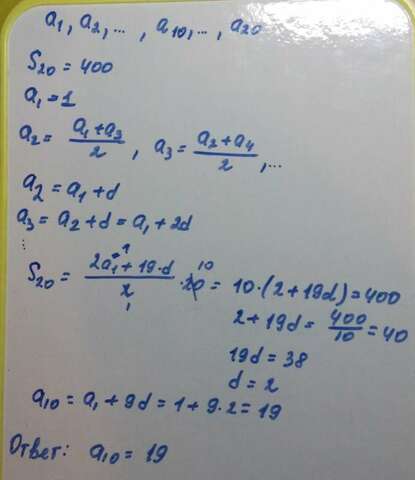 a₁, a₂, ... , a₁₀, ..., a₂₀
S₂₀ = 400
a₁ = 1
a₂ = (a₁ + a₃)/2 , a₃ = (a₂ + a₄)/2 , ...
a₂ = a₁ + d
a₃ = a₂ + d = a₁ + 2d
⋮
S₂₀ = (2a₁ + 19·d)/2 · 20 = 10·(2 + 19d) = 400
2 + 19d = 400/10 = 40
19d = 38
d = 2
a₁₀ = a₁ + 9d = 1 + 9·2 = 19
Ответ: a₁₀ = 19